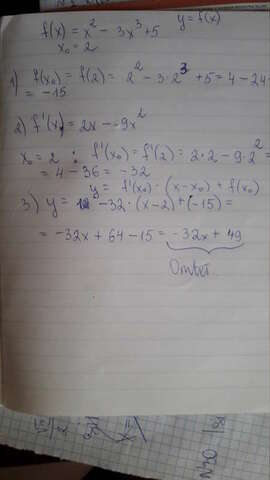 f(x) = x² - 3x³ + 5 y = f(x)
x₀ = 2
1) f(x₀) = f(2) = 2² - 3·2³ + 5 = 4 - 24
= -15
2) f'(x) = 2x - 9x²
x₀ = 2 : f'(x₀) = f'(2) = 2·2 - 9·2² =
= 4 - 36 = -32
y = f'(x₀)·(x - x₀) + f(x₀)
3) y = -32·(x-2) + (-15) =
= -32x + 64 - 15 = -32x + 49
Ответ